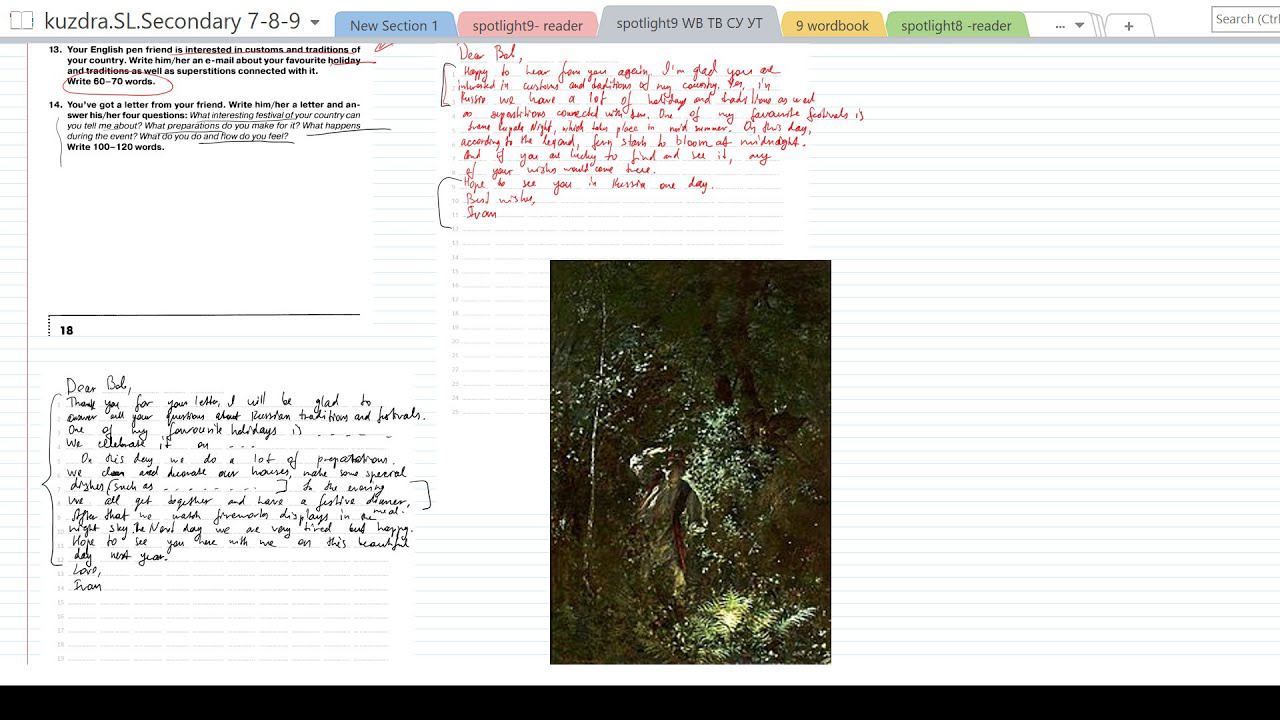 kuzdra.SL.Secondary 7-8-9
New Section 1
spotlight9- reader
spotlight9 WB ТВ СУ УТ
9 wordbook
spotlight8 -reader
...
+
Search (Ctrl
13. Your English pen friend is interested in customs and traditions of
your country. Write him/her an e-mail about your favourite holiday
and traditions as well as superstitions connected with it.
Write 60–70 words.
14. You've got a letter from your friend. Write him/her a letter and an-
swer his/her four questions: What interesting festival of your country can
you tell me about? What preparations do you make for it? What happens
during the event? What do you do and how do you feel?
Write 100–120 words.
18
Dear Bob,
Thank you for your letter, I will be glad to
answer all your questions about Russian traditions and festivals.
One of my favourite holidays is
We celebrate it on
On this day we do a lot of preparations.
We clean and decorate our houses, make some special
dishes (such as ] In the evening
we all get together and have a festive dinner,
meal.
After that we watch fireworks displays in the
night sky. The Next day we are very tired but happy.
Hope to see you here with me on this beautiful
day next year.
Love,
Ivan
Dear Bob,
Happy to hear from you again. I'm glad you are
interested in customs and traditions of my country. Yes, in
Russia we have a lot of holidays and traditions as well
as superstitions connected with them. One of my favourite festivals is
Kupala Night, which takes place in mid summer. On this day,
according to the legend, fern starts to bloom at midnight.
And if you are lucky to find and see it, any
of your wishes would come true.
Hope to see you in Russia one day.
Best wishes,
Ivan